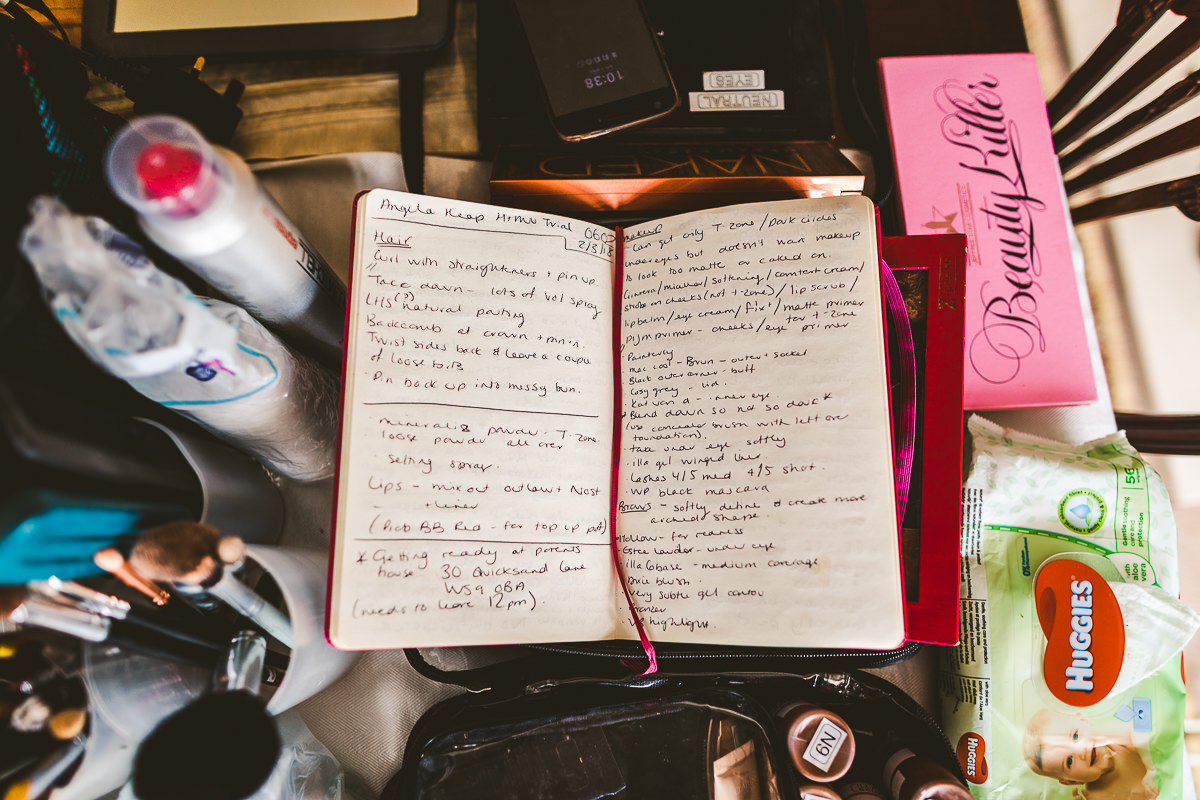 10:38
EYES
NEUTRAL
NAKED
Beauty Killer
Angela Heap H+MU Trial
2/3/18
Hair
Curl with straighteners + pin up.
Take down - lots of vol spray
LHS (?) natural parting
Backcomb at crown + pin in.
Twist sides back & leave a couple
of loose bits
Pin back up into messy bun.
mineralize powder - T-zone.
loose powder all over
setting spray.
Lips - mix out outlaw +
+ liner
(Prob BB Red - for top up pot)
* Getting ready at parents
house 30 Quicksand Lane
WS9 0BA
(needs to leave 12pm).
makeup
- Can get oily T-zone / Dark circles
undereyes but doesn't want makeup
to look too matte or caked on.
/ micellar / softening / comfort cream /
strobe on cheeks (not t-zone) / lip scrub /
lip balm / eye cream / fix+ / matte primer
primer - cheeks / eye primer for t-zone
· Painterly
· mac cool - Brun - outer + socket
· Black outer corner - buff
· Cosy grey - lid.
· Kat von d - inner eye.
* Blend down so not so dark *
(use concealer brush with left over
foundation).
· take under eye softly
· illa gel winged liner.
· lashes 4/5 med 4/5 short.
· WP black mascara
Brows - softly define & create more
arched shape.
· Yellow - for redness
· Estee lauder - under eye
· illa 6 base - medium coverage
blush.
Very subtle gel contour
Bronzer
highlight.
HUGGIES
56
Gentle soothing
care and
protection
with
aloe
vera
HUGGIES
N9